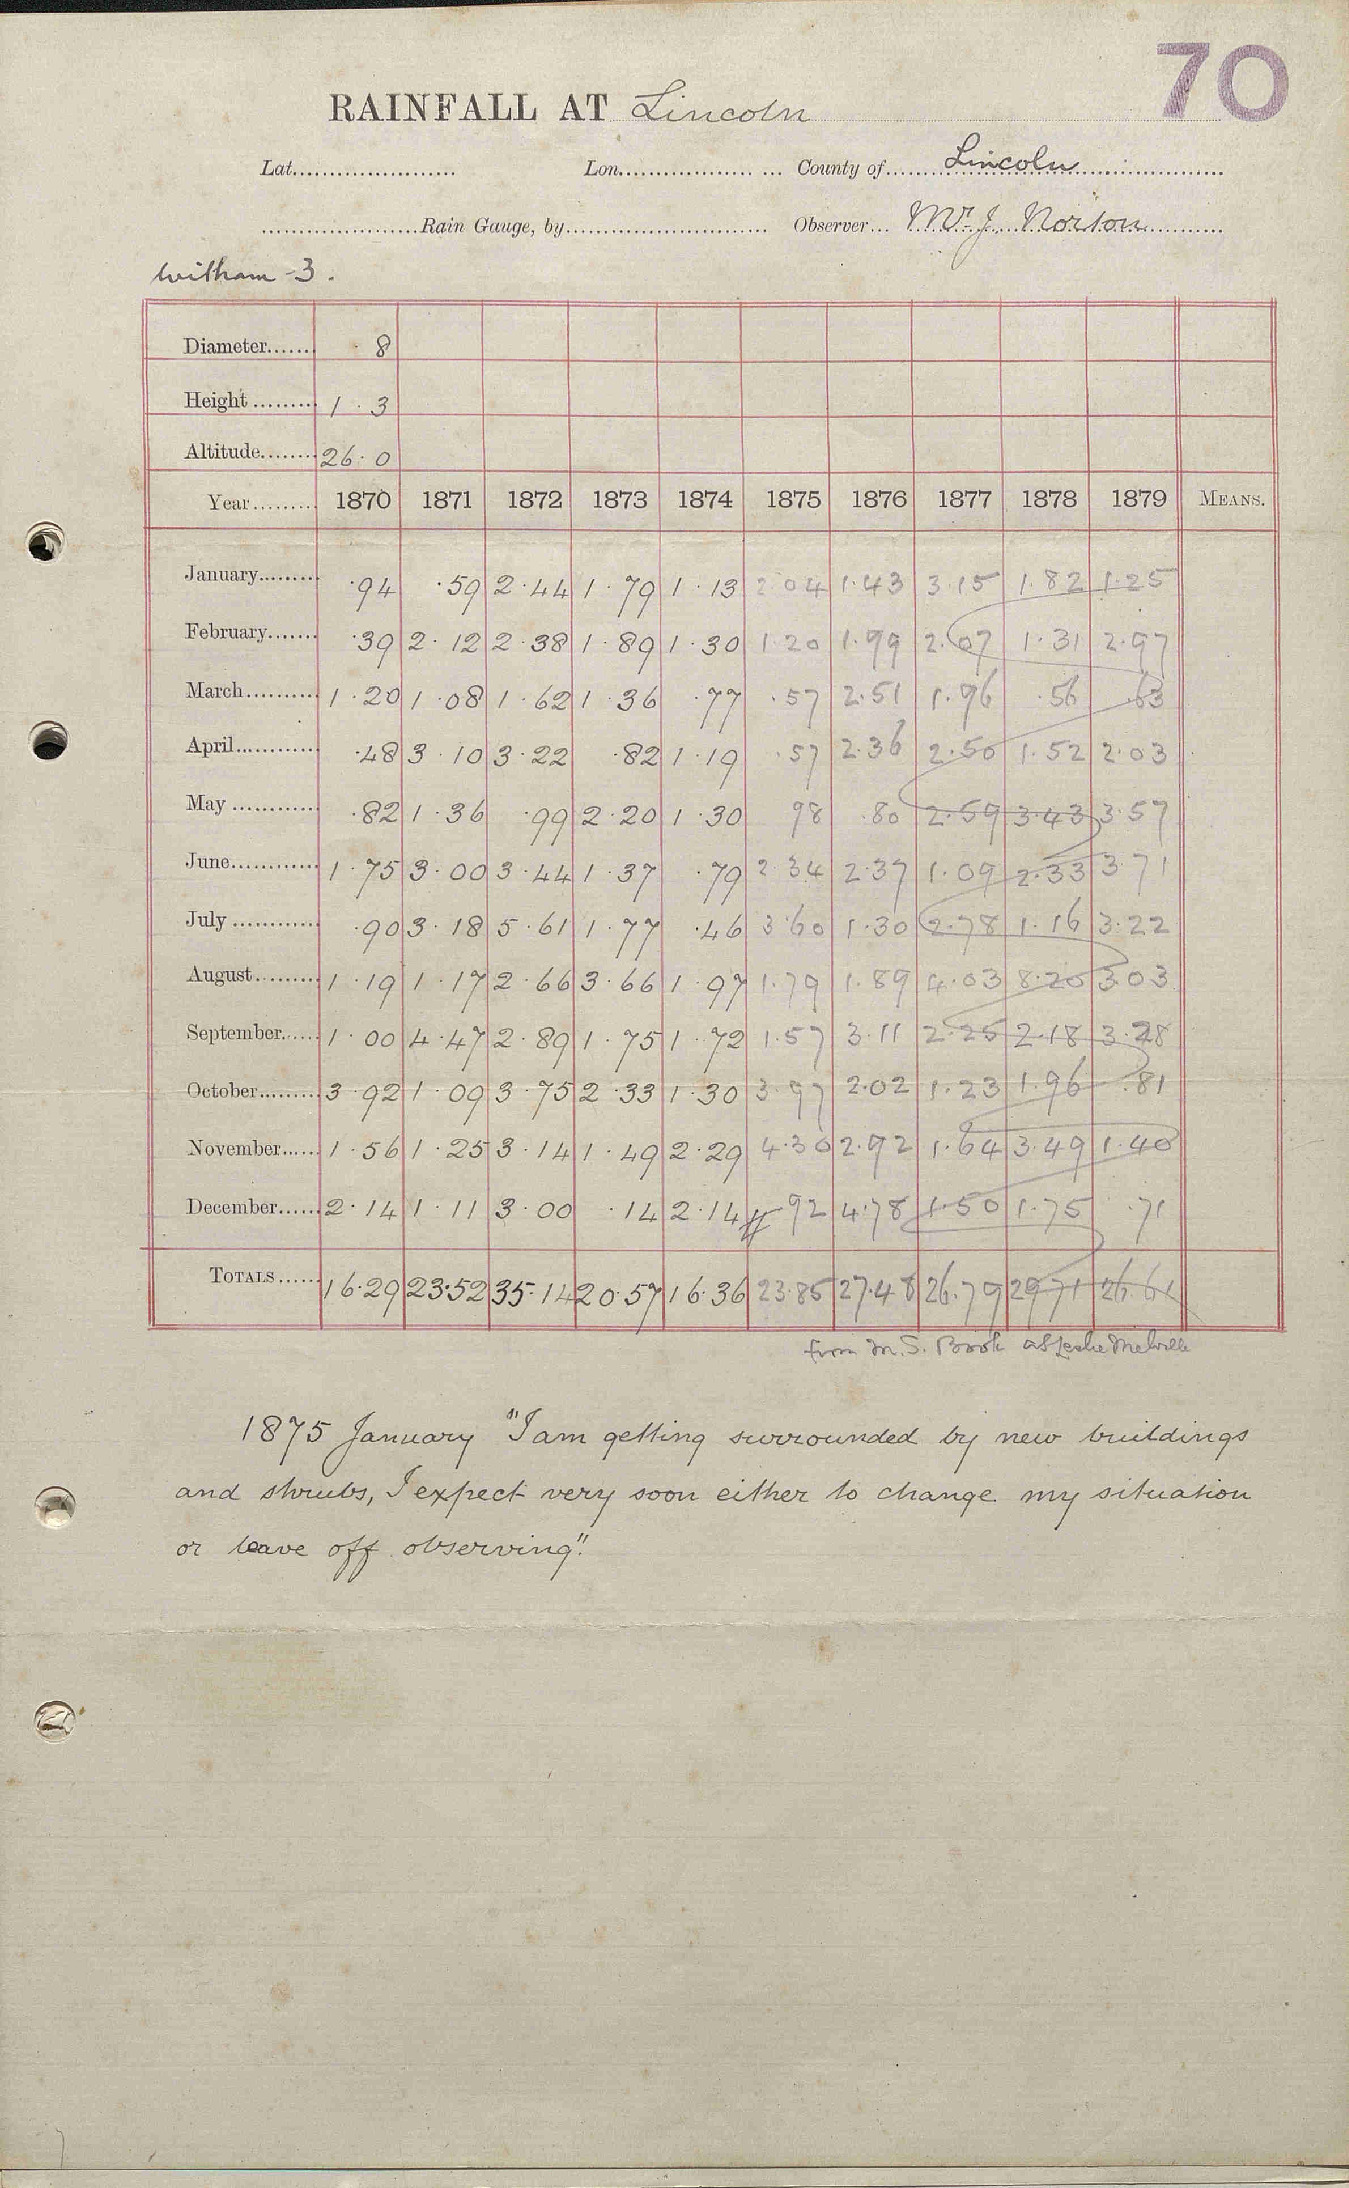 70
RAINFALL AT Lincoln
Lat...................... Lon.................. ... County of......Lincoln......
.....................Rain Gauge, by........................... Observer... Mr J. Norton
Witham 3.
Diameter....... 8
Height......... 1 . 3
Altitude........ 26 . 0
Year......... 1870 1871 1872 1873 1874 1875 1876 1877 1878 1879 MEANS.
January......... .94 .59 2.44 1.79 1.13 2.04 1.43 3.15 1.82 1.25
February....... .39 2.12 2.38 1.89 1.30 1.20 1.99 2.07 1.31 2.97
March.......... 1.20 1.08 1.62 1.36 .77 .57 2.51 1.96 .56 .63
April............ .48 3.10 3.22 .82 1.19 .57 2.36 2.50 1.52 2.03
May............ .82 1.36 .99 2.20 1.30 98 .80 2.59 3.43 3.57
June............ 1.75 3.00 3.44 1.37 .79 2.34 2.37 1.09 2.33 3.71
July............ .90 3.18 5.61 1.77 .46 3.60 1.30 2.78 1.16 3.22
August......... 1.19 1.17 2.66 3.66 1.97 1.79 1.89 4.03 8.20 3.03
September...... 1.00 4.47 2.89 1.75 1.72 1.57 3.11 2.25 2.18 3.28
October......... 3.92 1.09 3.75 2.33 1.30 3.97 2.02 1.23 1.96 .81
November...... 1.56 1.25 3.14 1.49 2.29 4.30 2.92 1.64 3.49 1.40
December...... 2.14 1.11 3.00 .14 2.14 92 4.78 1.50 1.75 .71
TOTALS...... 16.29 23.52 35.14 20.57 16.36 23.85 27.48 26.79 29.71 26.61
from M.S. Book Leslie Melville
1875 January "I am getting surrounded by new buildings
and shrubs, I expect very soon either to change my situation
or leave off observing."